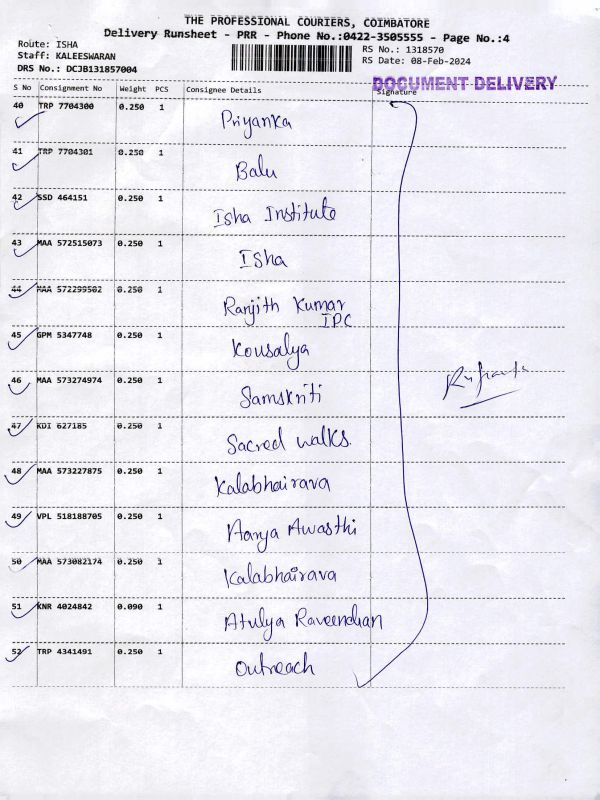 THE PROFESSIONAL COURIERS, COIMBATORE
Delivery Runsheet - PRR - Phone No.:0422-3505555 - Page No.:4
Route: ISHA
Staff: KALEESWARAN
DRS No.: DCJB131857004
RS No.: 1318570
RS Date: 08-Feb-2024
DOCUMENT DELIVERY
S No Consignment No Weight PCS Consignee Details Signature
40 TRP 7704300 0.250 1 Priyanka
41 TRP 7704301 0.250 1 Balu
42 SSD 464151 0.250 1 Isha Institute
43 MAA 572515073 0.250 1 Isha
44 MAA 572299502 0.250 1 Ranjith Kumar
IPC
45 GPM 5347748 0.250 1 Kousalya
46 MAA 573274974 0.250 1 Samskriti
47 KDI 627185 0.250 1 Sacred walks.
48 MAA 573227875 0.250 1 Kalabhairava
49 VPL 518188705 0.250 1 Aarya Awasthi
50 MAA 573082174 0.250 1 Kalabhairava
51 KNR 4024842 0.090 1 Atulya Raveendran
52 TRP 4341491 0.250 1 Outreach